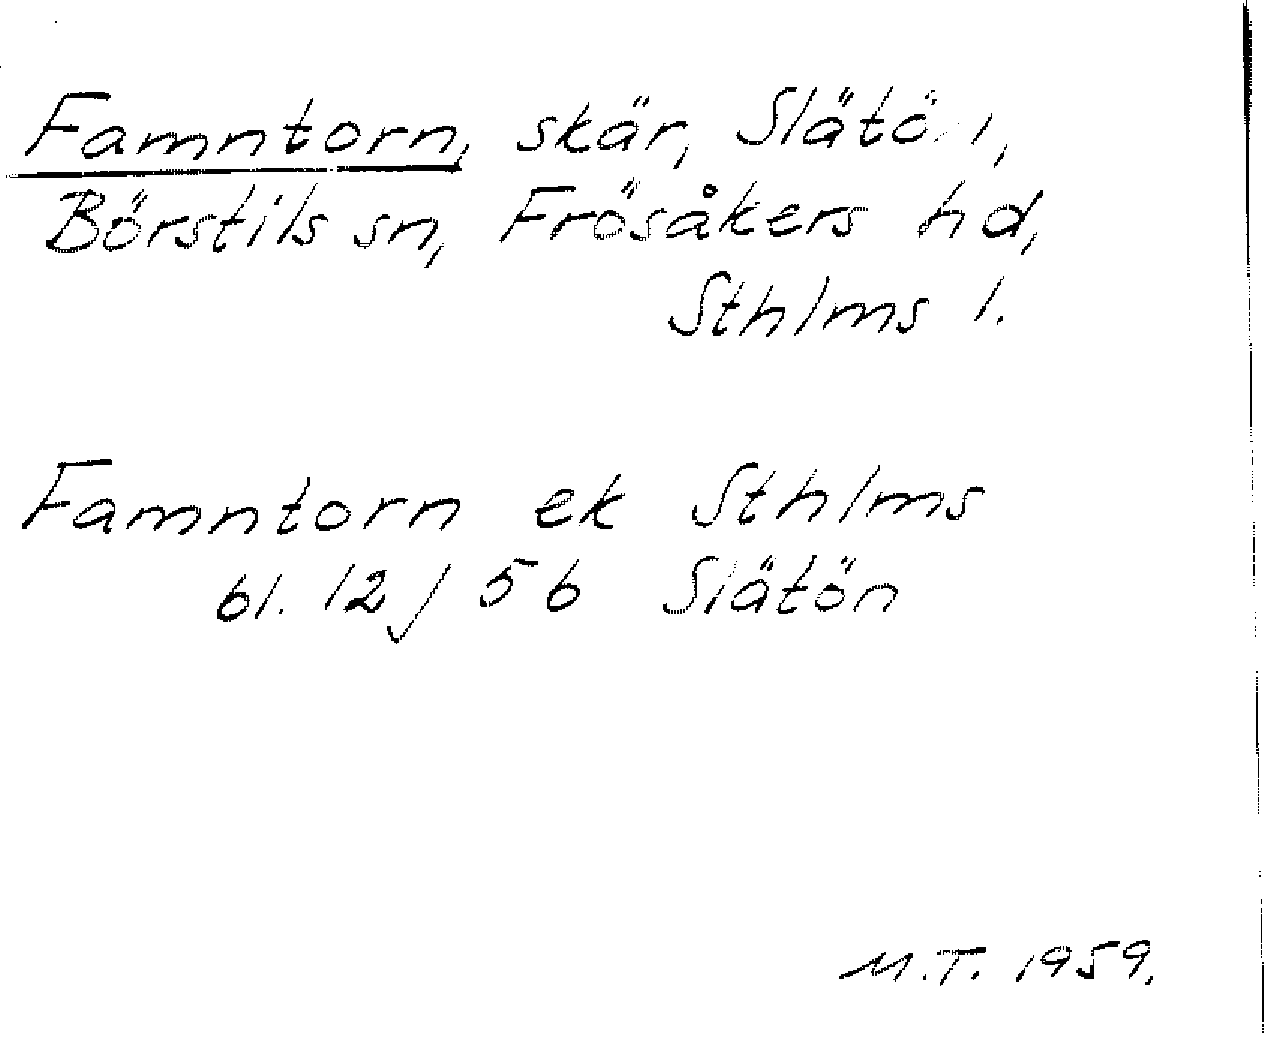 Famntorn, skär, Slätön,
Börstils sn, Frösåkers hd,
Sthlms l.
Famntorn ek Sthlms
bl. 12 / 56 Slätön
M.T. 1959.